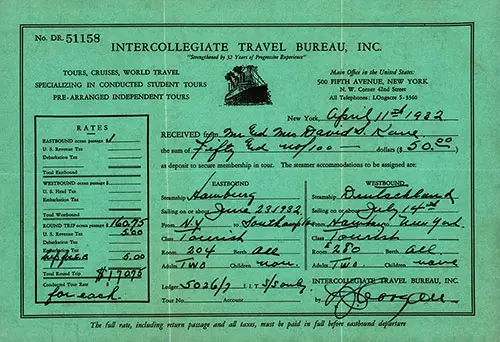 No. DR. 51158
INTERCOLLEGIATE TRAVEL BUREAU, INC.
"Strengthened by 32 Years of Progressive Experience"
TOURS, CRUISES, WORLD TRAVEL
SPECIALIZING IN CONDUCTED STUDENT TOURS
PRE-ARRANGED INDEPENDENT TOURS
Main Office in the United States:
500 FIFTH AVENUE, NEW YORK
N. W. Corner 42nd Street
All Telephones: LOngacre 5-3360
New York, April 11th 1932
RECEIVED from Mr and Mrs David S. Kane
the sum of Fifty and no/100 — dollars ($ 50.00)
as deposit to secure membership in tour. The steamer accommodations to be assigned are:
RATES
EASTBOUND ocean passage $
U. S. Revenue Tax
Debarkation Tax
Total Eastbound
WESTBOUND ocean passage $
U. S. Head Tax
Embarkation Tax
Total Westbound
ROUND TRIP ocean passage $ 160.75
U. S. Revenue Tax 5.00
Debarkation Tax
Embarkation Tax
5.00
Total Round Trip $170.75
Conducted Tour Rate $
for each
EASTBOUND
Steamship Hamburg
Sailing on or about June 23 1932
From N.Y. to Southampton
Class Tourist
Room 204 Berth All
Adults Two Children non
WESTBOUND
Steamship Deutschland
Sailing on or about July 14th
From Hamburg New York
Class Tourist
Room 280 Berth All
Adults Two Children none
Ledger 5026/7 I. I. T. S/S only
Tour No. Account
INTERCOLLEGIATE TRAVEL BUREAU, INC.
by
The full rate, including return passage and all taxes, must be paid in full before eastbound departure